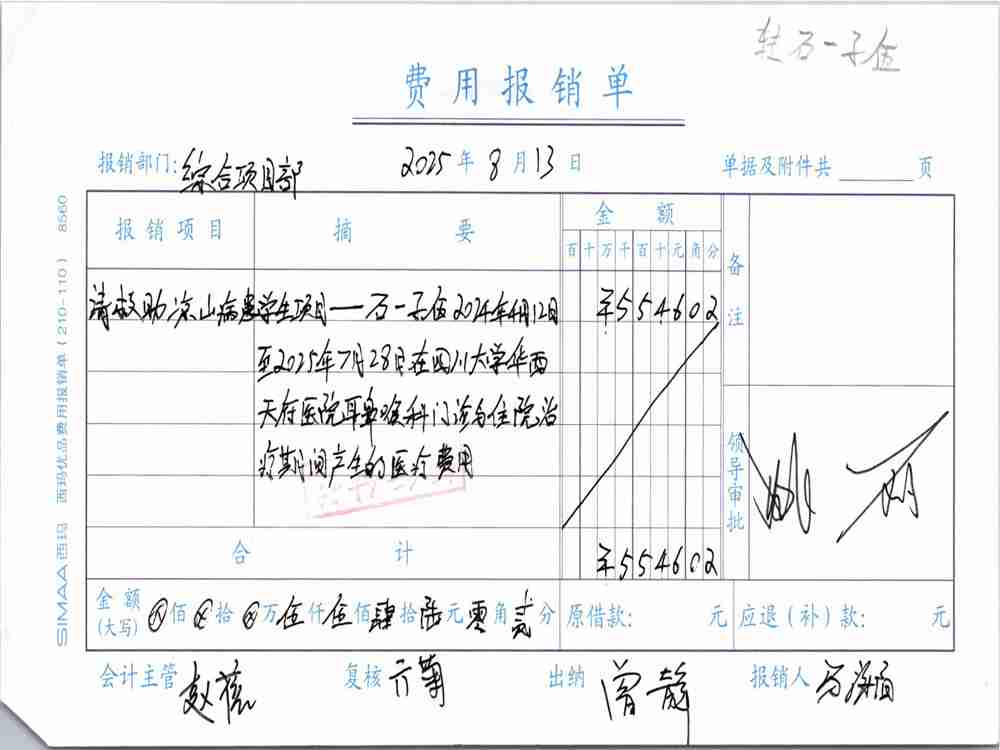 转石一子伍
费用报销单
报销部门:综合项目部 2025年8月13日 单据及附件共 页
报销项目 摘要 金额 备注
百十万千百十元角分
请救助凉山病患学生项目——石一子伍2024年4月12日 ¥554602
至2025年7月28日在四川大学华西
天府医院耳鼻喉科门诊与住院治
疗期间产生的医疗费用
领导审批
合计 ¥554602
金额(大写) 佰 拾 万伍仟伍佰肆拾陆元零角贰分 原借款: 元 应退(补)款: 元
会计主管 赵 复核 出纳 曾静 报销人
SIMAA西玛 西玛优品费用报销单(210-110) 8560